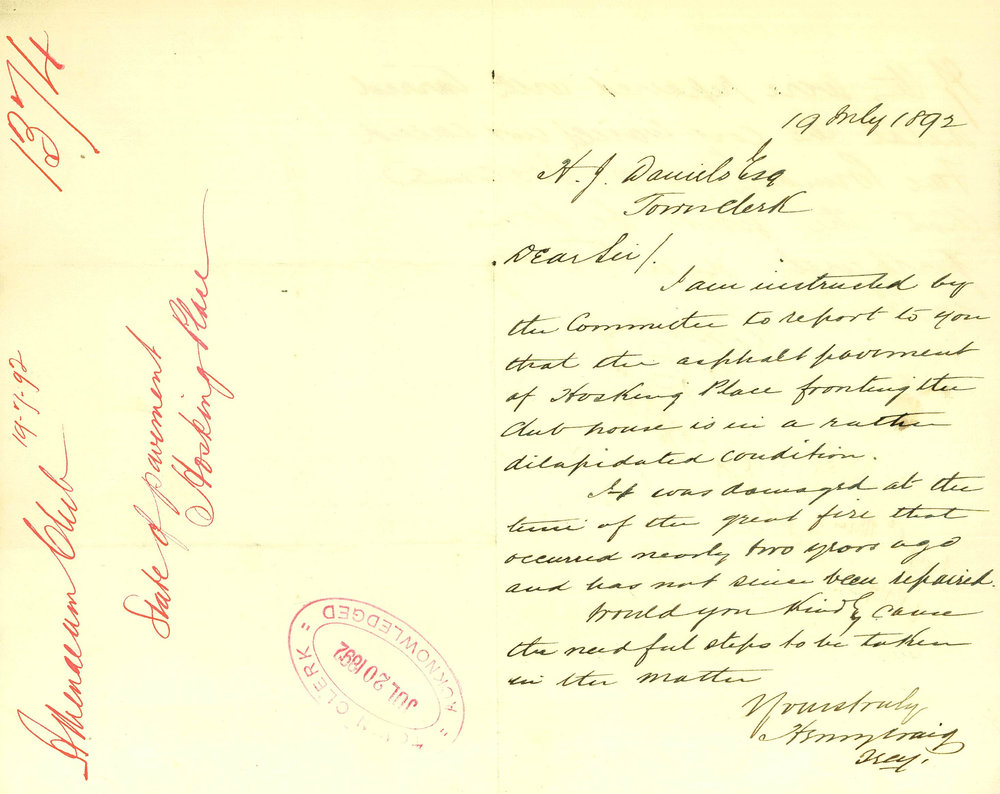 1374
Athenaeum Club 19-7-92
State of pavement
Hosking Place
TOWN CLERK
JUL 20 1892
"ACKNOWLEDGED"
19 July 1892
H. J. Daniels Esq
Town Clerk
Dear Sir/.
I am instructed by
the Committee to report to you
that the asphalt pavement
of Hosking Place fronting the
Club house is in a rather
dilapidated condition.
It was damaged at the
time of the great fire that
occurred nearly two years ago
and has not since been repaired.
Would you kindly cause
the needful steps to be taken
in the matter
Yours truly
Henry Craig
Secy.